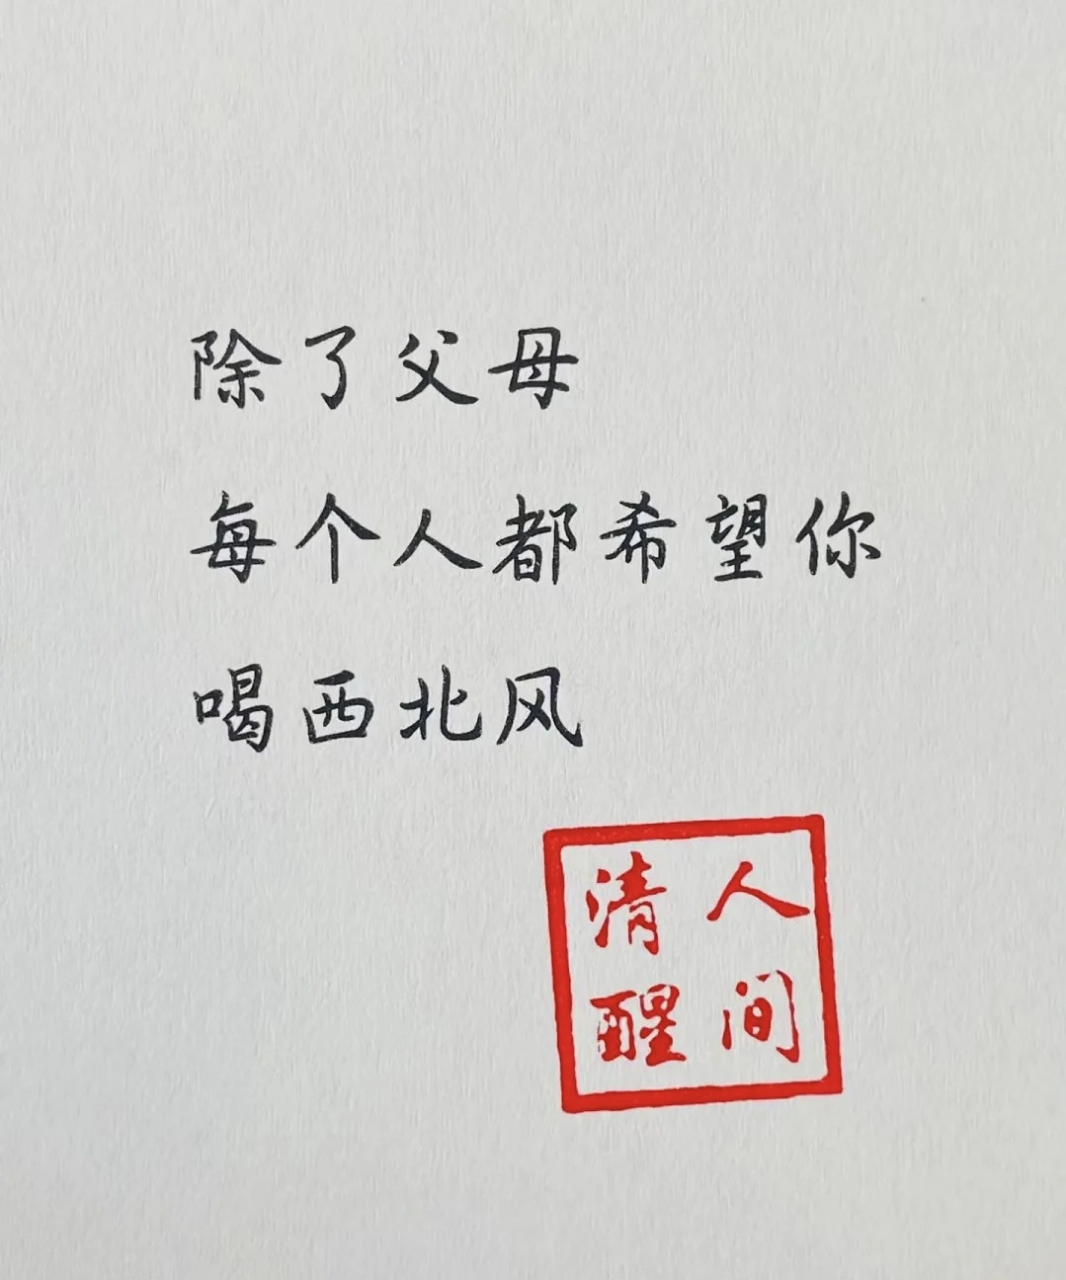 除了父母
每个人都希望你
喝西北风
人间
清醒